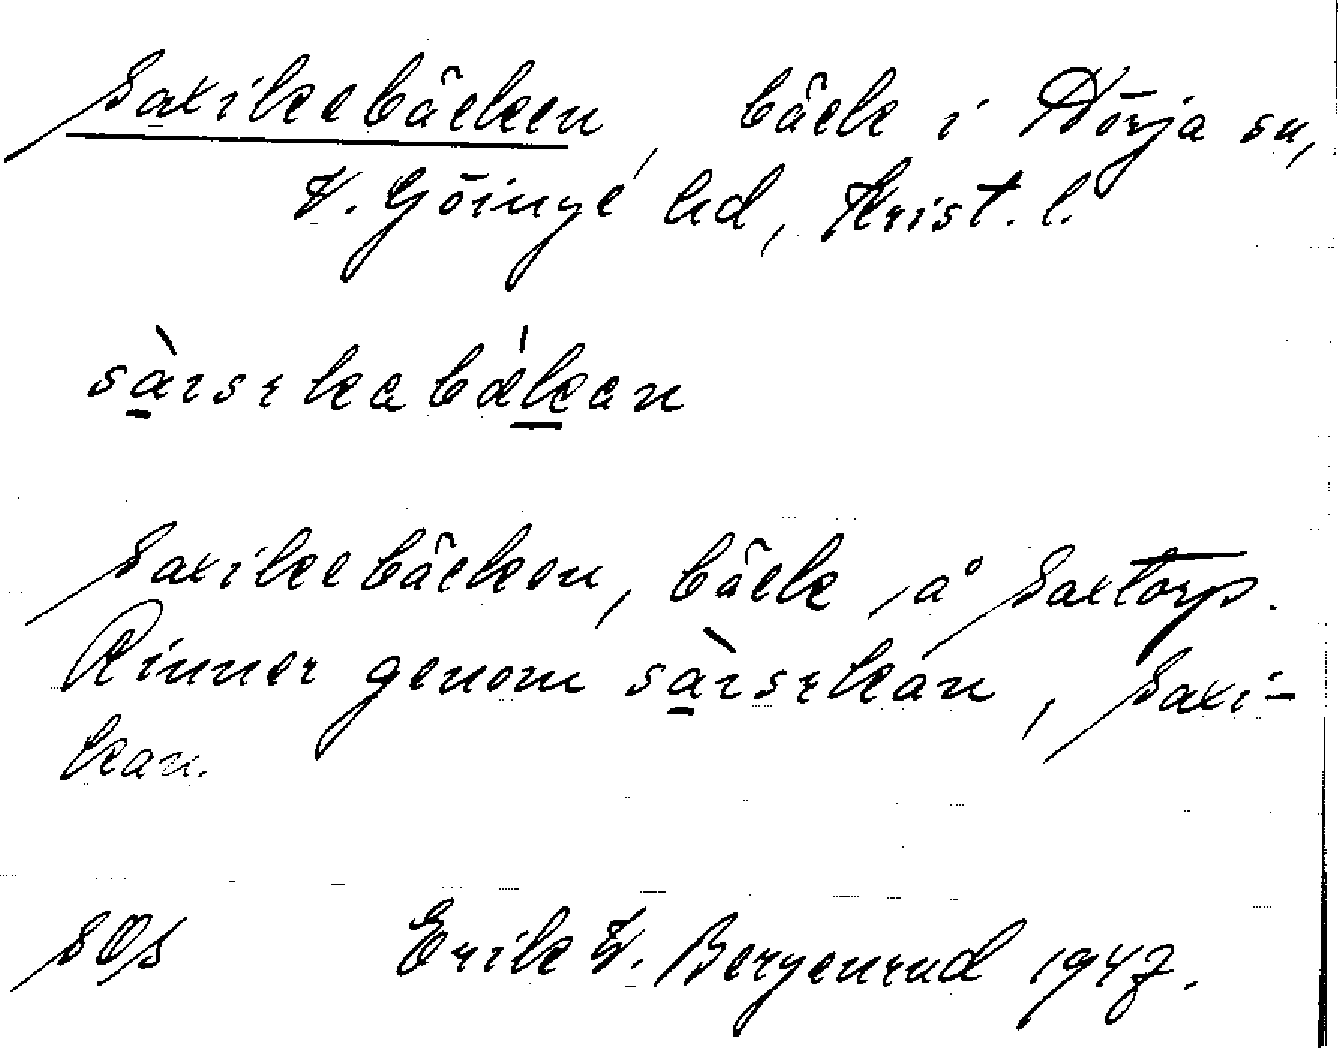 Saxikebäcken, bäck i Nörja sn,
V. Göinge hd, Krist. l.
Saxikebäcken, bäck å Saxtorp.
Rinner genom sàrsɛkan, Saxi-
kan.
SOs Erik V. Bergenrud 1947.